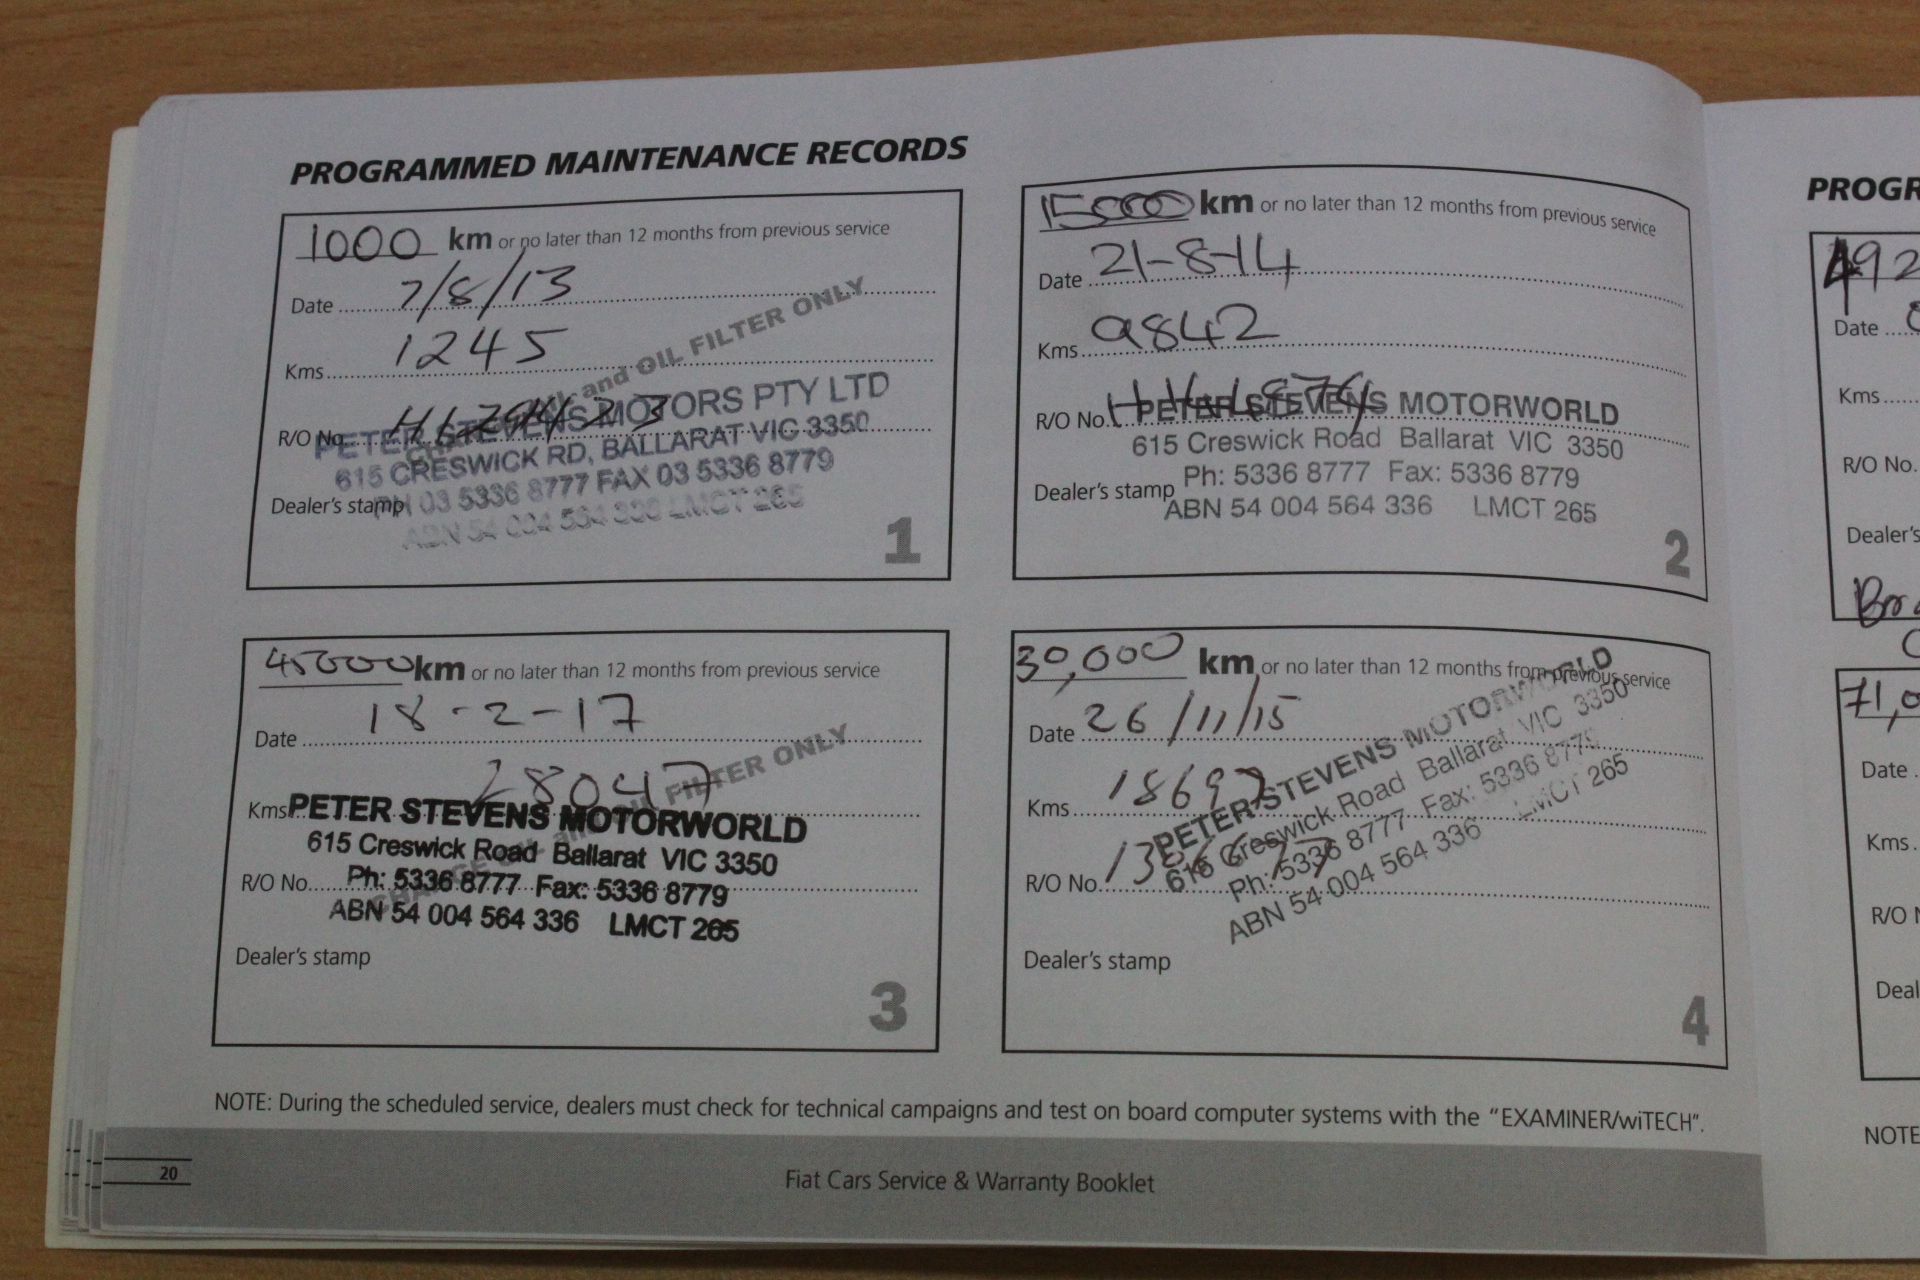 PROGRAMMED MAINTENANCE RECORDS
1000 km or no later than 12 months from previous service
Date 7/8/13
Kms 1245
CHANGE OIL and OIL FILTER ONLY
R/O No.
PETER STEVENS MOTORS PTY LTD
615 CRESWICK RD, BALLARAT VIC 3350
PH 03 5336 8777 FAX 03 5336 8779
Dealer's stamp
ABN 54 004 564 336 LMCT 265
1
15000 km or no later than 12 months from previous service
Date 21-8-14
Kms 9842
R/O No.
PETER STEVENS MOTORWORLD
615 Creswick Road Ballarat VIC 3350
Ph: 5336 8777 Fax: 5336 8779
Dealer's stamp
ABN 54 004 564 336 LMCT 265
2
45000 km or no later than 12 months from previous service
Date 18-2-17
CHANGE OIL and OIL FILTER ONLY
Kms 28047
PETER STEVENS MOTORWORLD
615 Creswick Road Ballarat VIC 3350
R/O No.
Ph: 5336 8777 Fax: 5336 8779
ABN 54 004 564 336 LMCT 265
Dealer's stamp
3
30,000 km or no later than 12 months from previous service
Date 26/11/15
Kms
R/O No.
PETER STEVENS MOTORWORLD
615 Creswick Road Ballarat VIC 3350
Ph: 5336 8777 Fax: 5336 8779
ABN 54 004 564 336 LMCT 265
Dealer's stamp
4
NOTE: During the scheduled service, dealers must check for technical campaigns and test on board computer systems with the "EXAMINER/wiTECH".
20
Fiat Cars Service & Warranty Booklet
PROGR
492
Date
Kms
R/O No.
Dealer's
71,0
Date
Kms
R/O N
Deal
NOTE